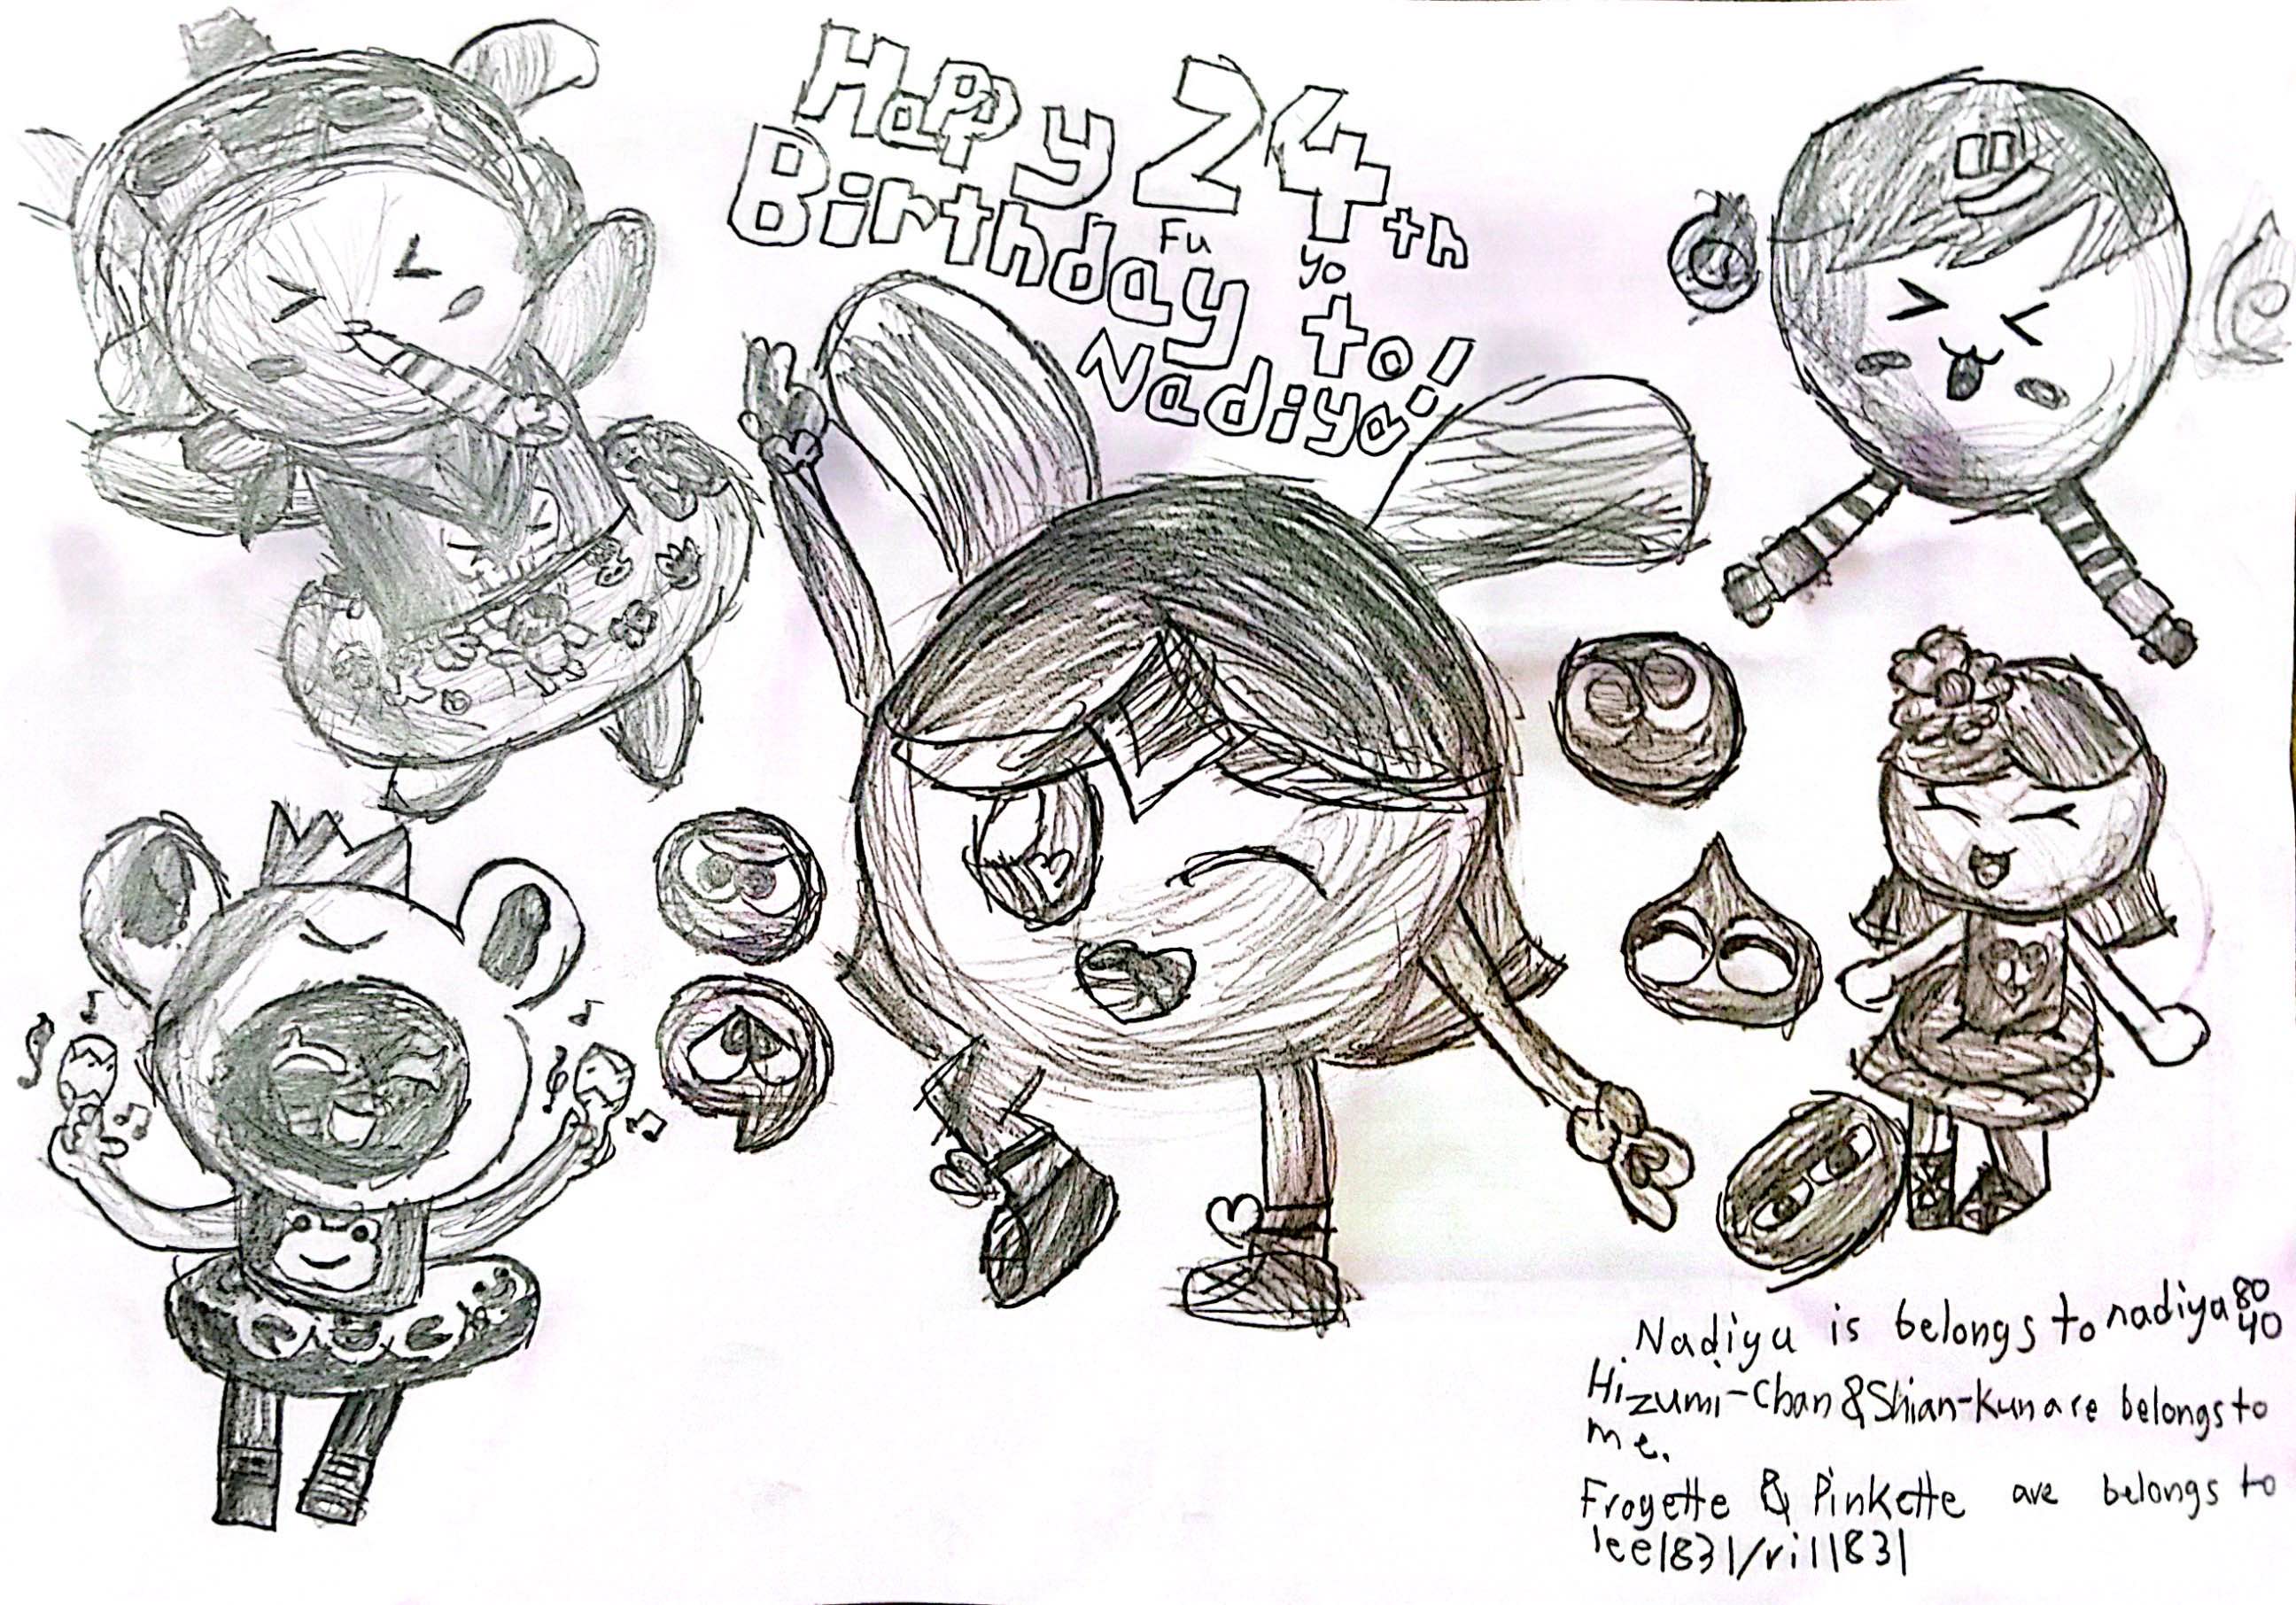 Happy 24th
Birthday to
Fu yo
Nadiya!
Nadiya is belongs to nadiya8040
Hizumi-Chan & Shian-Kun are belongs to
me.
Frogette & Pinkette are belongs to
lee1831/ril1831